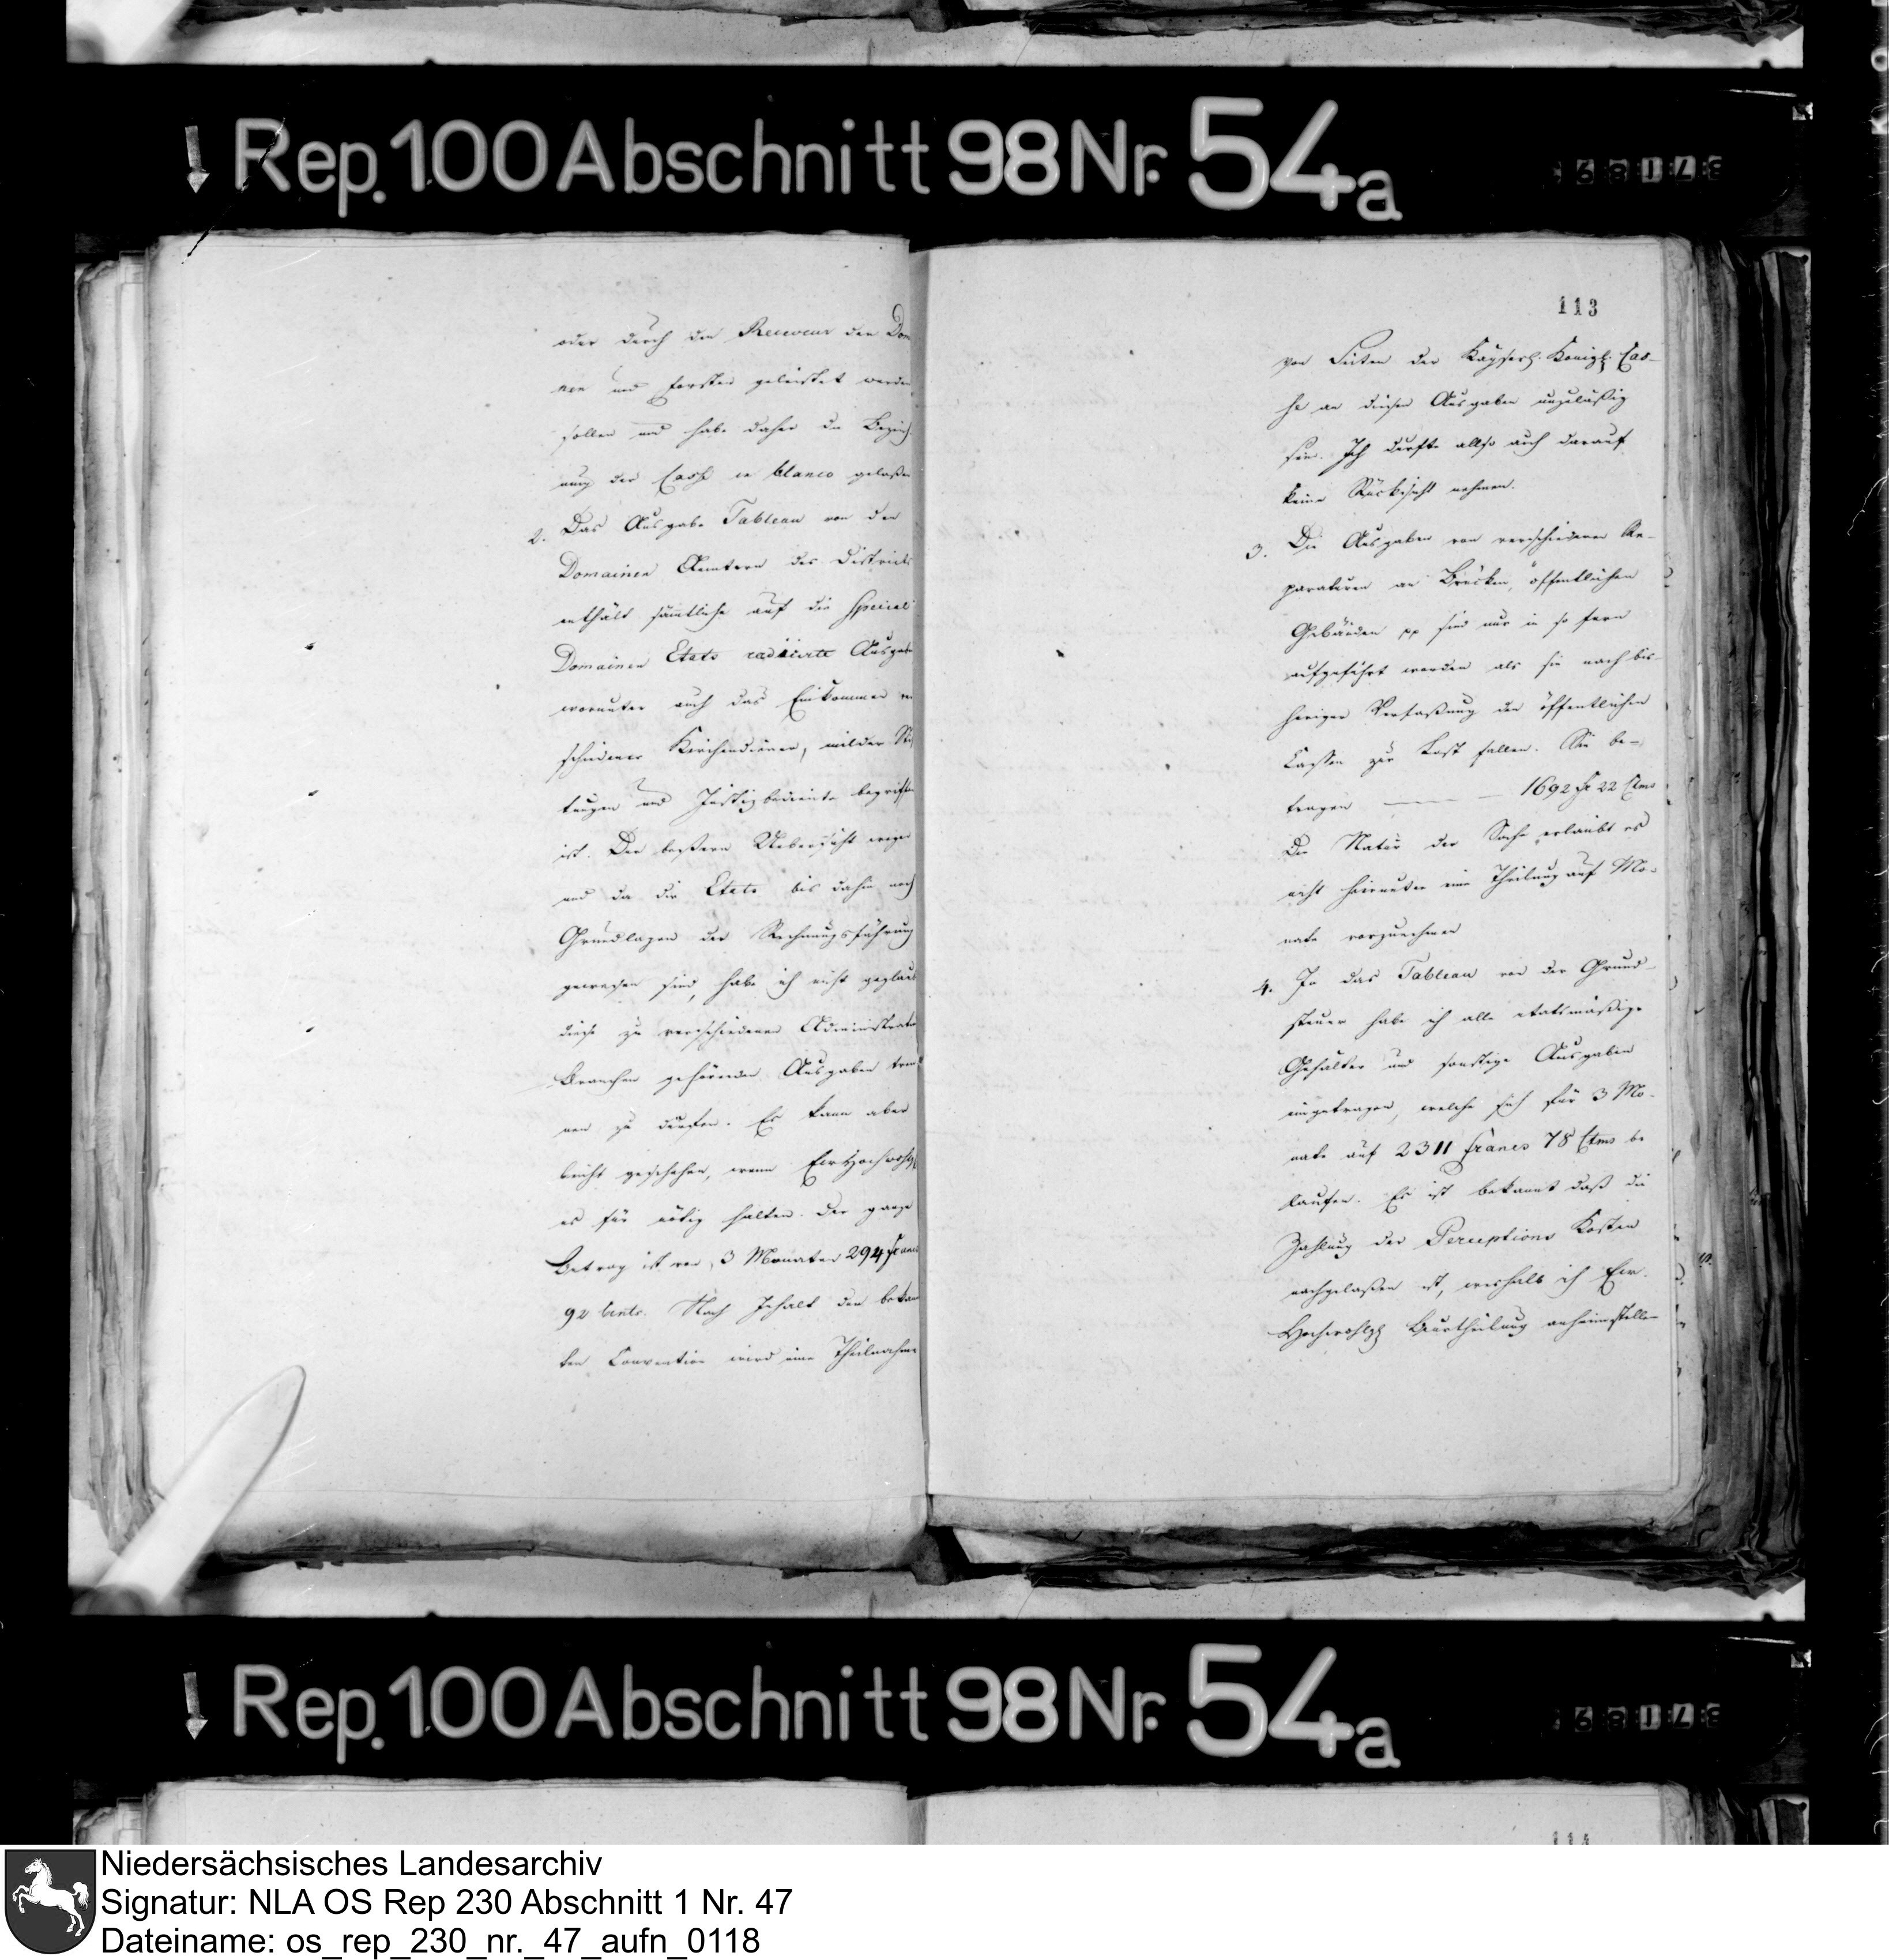 Rep. 100 Abschnitt 98 Nr. 54a
oder durch den Receveur der Dom
nen und Forsten geleistet werden
sollen und habe daher die Bezeich-
nung der Casse in blanco gelaßen
2. Das Ausgabe Tableau von den
Domainen Aemtern des Districts
enthält sämtliche auf die Special
Domainen Etats radicirte Ausgabe
worunter auch das Einkommen ver
schiedener Kirchendiener, milder Stif
tungen und Justizbediente begriffen
ist. Der beßern Uebersicht wegen
und da die Etats bis dahin noch
Grundlagen der Rechnungsführung
gewesen sind, habe ich nicht geglaubt
diese zu verschiedenen Administrations
Branchen gehörenden Ausgaben tren
nen zu dürfen. Es kann aber
leicht geschehen, wenn Ew Hochwohlg
es für nötig halten. Der ganze
Betrag ist von 3 Monaten 294 Francs
92 Cents. Nach Inhalt der bekan
ten Convention wird eine Theilnahme
113
von Seiten der Kayserl. Königl. Cas-
se an diesen Ausgaben unzuläßig
sein. Ich durfte also auch darauf
keine Rücksicht nehmen.
3. Die Ausgaben von verschiedenen Re-
paraturen an Brücken, öffentlichen
Gebäuden pp sind nur in so fern
aufgeführt worden als sie nach bis-
heriger Verfaßung den öffentlichen
Cassen zur Last fallen. Sie be-
tragen — — 1692 Fr 22 Ctms
Die Natur der Sache erlaubt es
nicht hierunter eine Theilung auf Mo-
nate vorzunehmen
4. In das Tableau von der Grund-
steuer habe ich alle etatsmäßige
Gehälter und sonstige Ausgaben
eingetragen, welche sich für 3 Mo-
nate auf 2311 francs 78 Ctms be
laufen. Es ist bekannt daß die
Zahlung der Perceptions Kosten
nachgelaßen ist, weshalb ich Ew.
Hochwohlgb Beurtheilung anheimstelle
Rep. 100 Abschnitt 98 Nr. 54a
114
Niedersächsisches Landesarchiv
Signatur: NLA OS Rep 230 Abschnitt 1 Nr. 47
Dateiname: os_rep_230_nr._47_aufn_0118